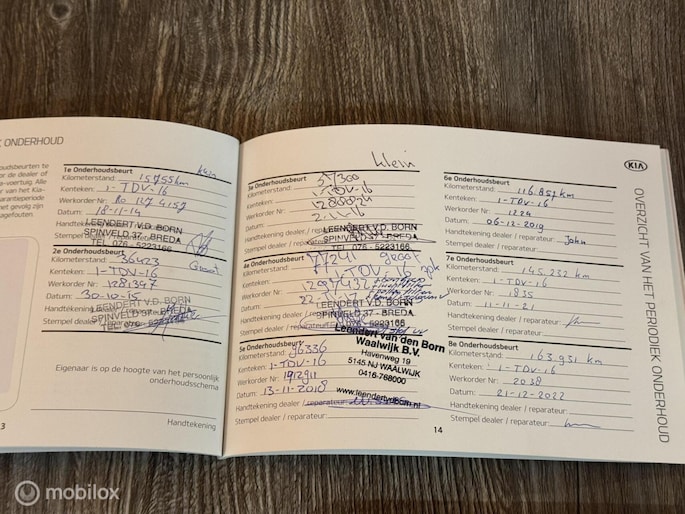 K ONDERHOUD
oudsbeurten te
or de dealer of
a-voertuig. Alle
er van het Kia-
arantieperiode
net gevolg zijn
agefouten.
1e Onderhoudsbeurt
Kilometerstand: 15755km
Kenteken: 1-TDV-16
Werkorder Nr: 80 137 4157
Datum: 18-11-14
LEENDERT V.D. BORN
SPINVELD 37 - BREDA
TEL 076 - 5223166
2e Onderhoudsbeurt Groot
Kilometerstand: 36423
Kenteken: 1-TDV-16
Werkorder Nr: 1281347
Datum: 30-10-15
LEENDERT V.D. BORN
SPINVELD 37 - BREDA
TEL 076 - 5223166
Eigenaar is op de hoogte van het persoonlijk
onderhoudsschema
Handtekening
3
klein
3e Onderhoudsbeurt
Kilometerstand:
Kenteken: 1-TDV-16
Werkorder Nr:
Datum:
LEENDERT V.D. BORN
SPINVELD 37 - BREDA
TEL 076 - 5223166
4e Onderhoudsbeurt groot
Kilometerstand: 77241
Kenteken: 1-TDV-16
Werkorder Nr: 1297437
Datum: 22
LEENDERT V.D. BORN
SPINVELD 37 - BREDA
TEL 076 - 5223166
Stempel dealer / reparateur:
5e Onderhoudsbeurt
Kilometerstand: 96336
Kenteken: 1-TDV-16
Werkorder Nr: 1912911
Datum: 13-11-2018
Leendert van den Born
Waalwijk B.V.
Havenweg 19
5145 NJ WAALWIJK
0416-768000
www.leendertvdborn.nl
Handtekening dealer / reparateur:
Stempel dealer / reparateur:
14
6e Onderhoudsbeurt
Kilometerstand: 116.857 km
Kenteken: 1-TDV-16
Werkorder Nr: 1224
Datum: 06-12-2019
Handtekening dealer / reparateur: John
Stempel dealer / reparateur:
7e Onderhoudsbeurt
Kilometerstand: 145.232 km
Kenteken: 1-TDV-16
Werkorder Nr: 1835
Datum: 11-11-21
Handtekening dealer / reparateur:
Stempel dealer / reparateur:
8e Onderhoudsbeurt
Kilometerstand: 163.931 km
Kenteken: 1-TDV-16
Werkorder Nr: 2038
Datum: 21-12-2022
Handtekening dealer / reparateur:
Stempel dealer / reparateur:
KIA
OVERZICHT VAN HET PERIODIEK ONDERHOUD
mobilox